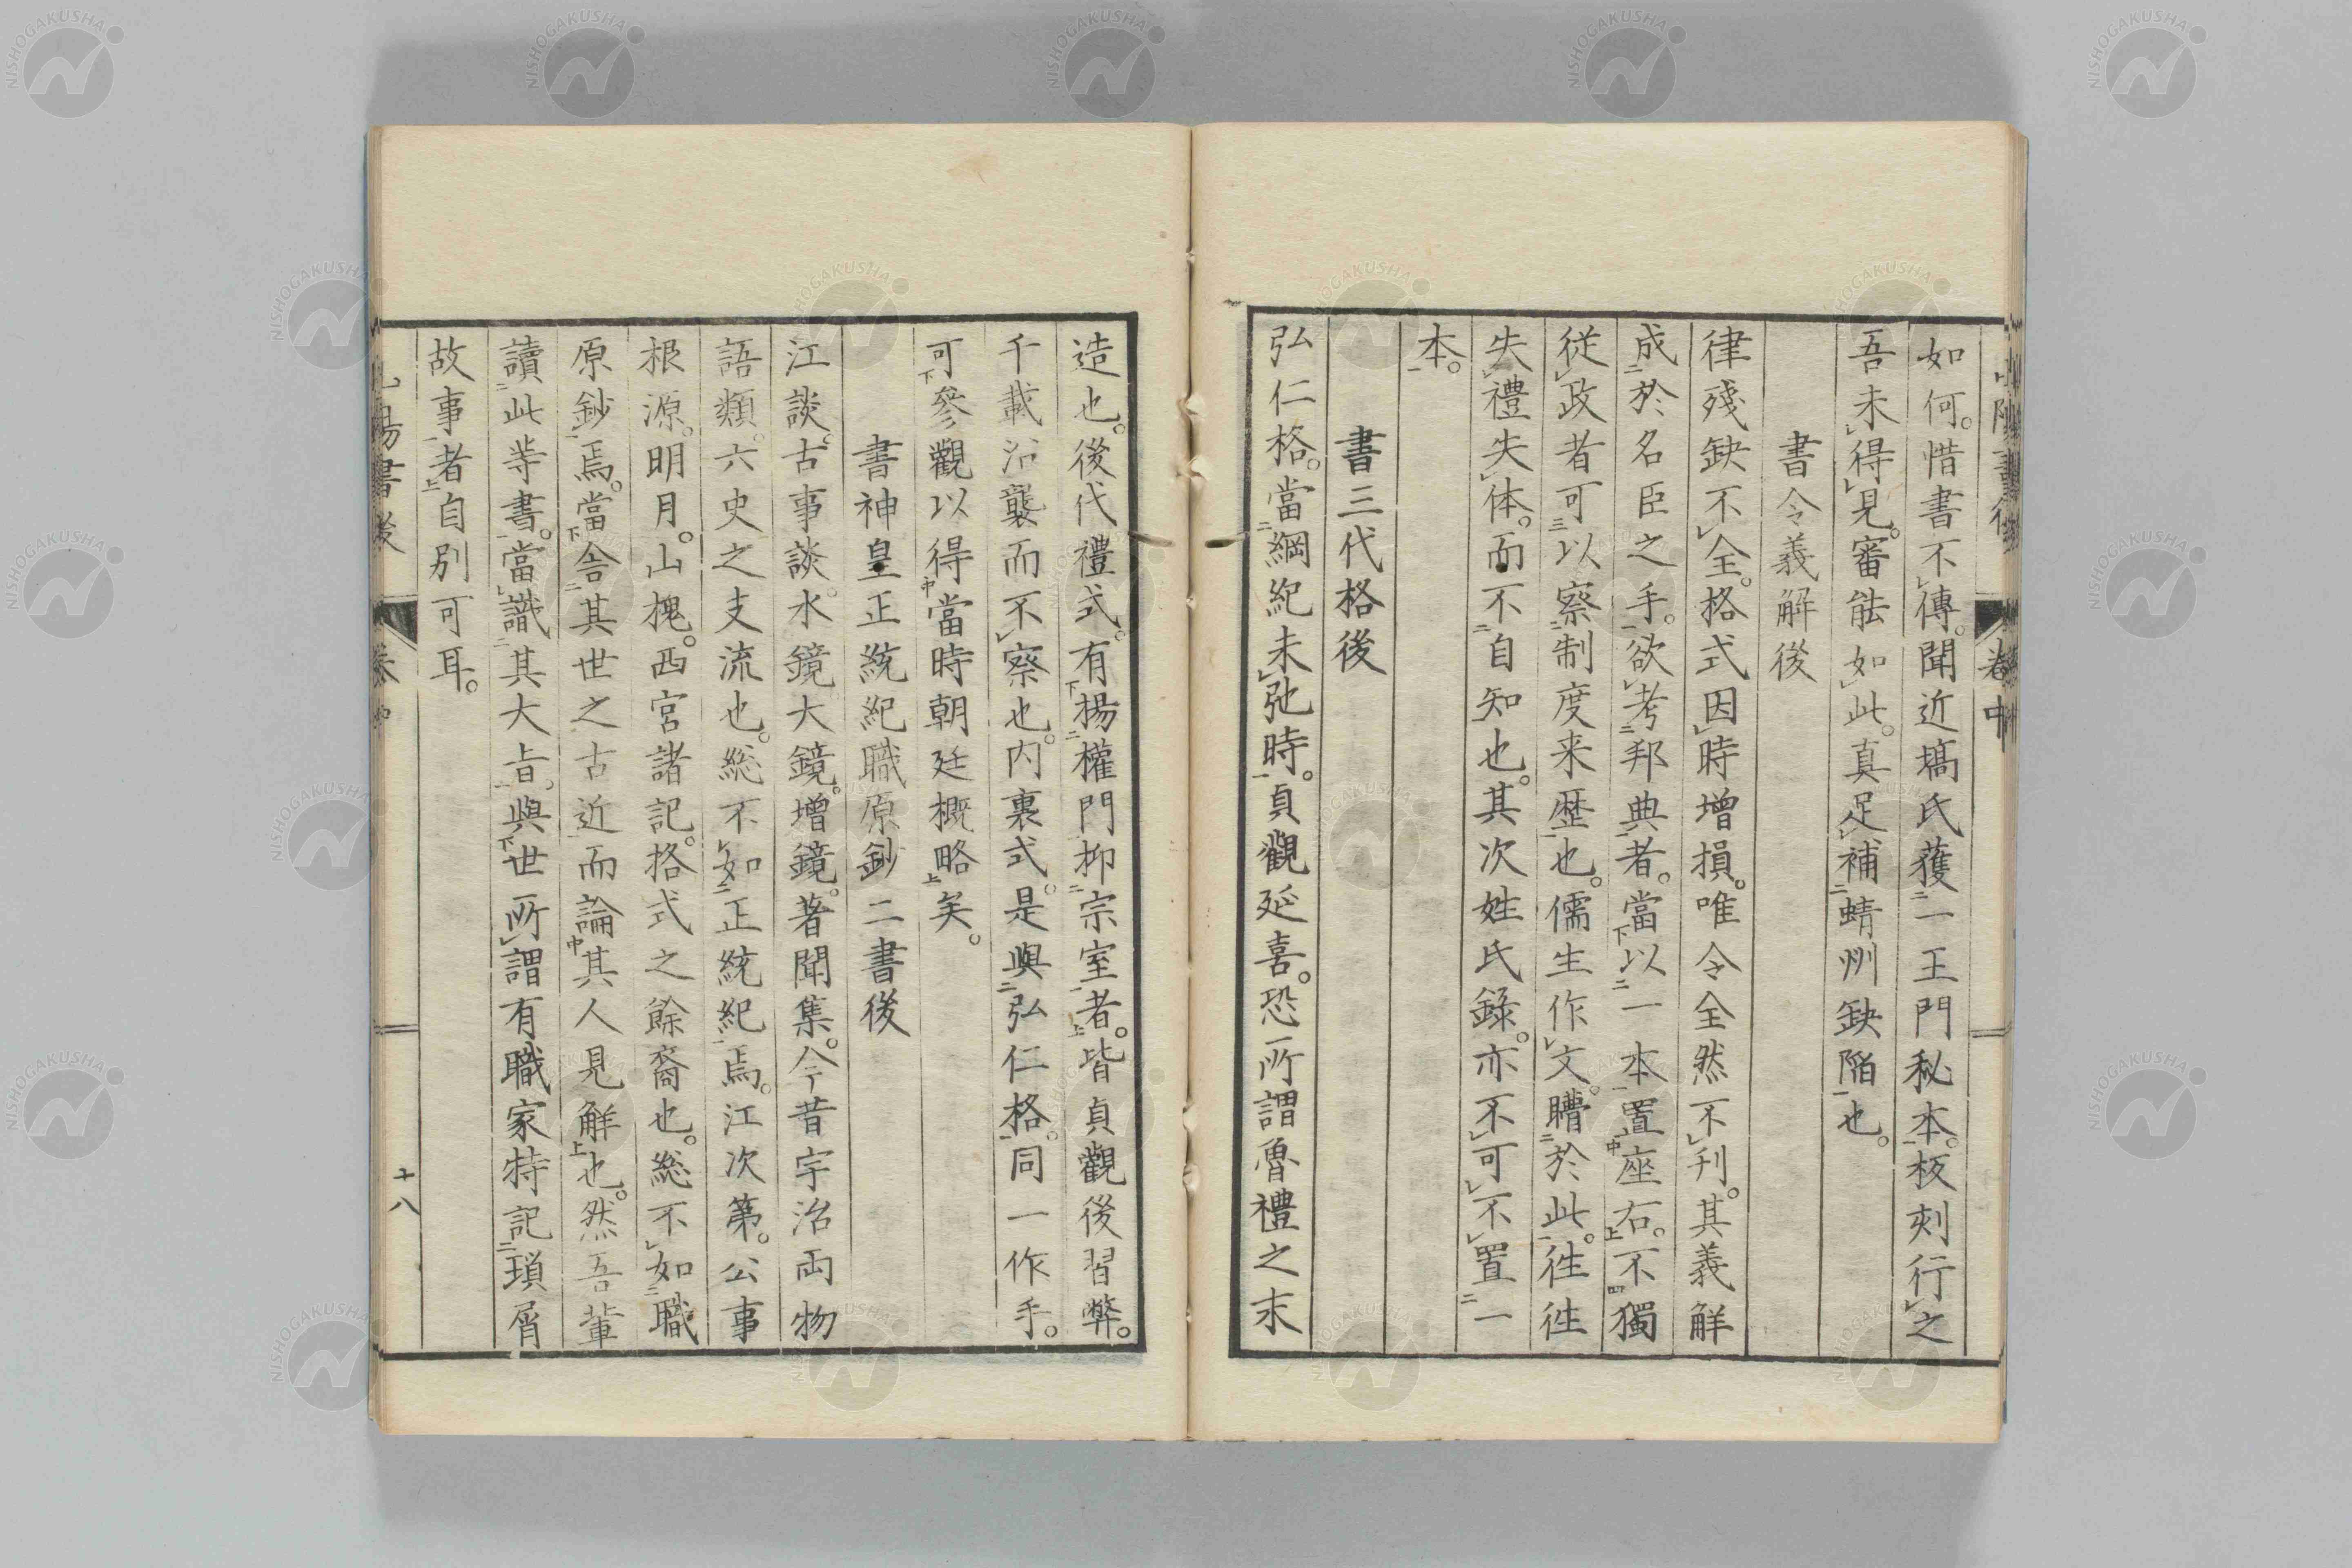 卷中
如何。惜書不傳。聞近塙氏獲一王門秘本。板刻行之
吾未得見。審能如此。真足補蜻州缺陥也。
書令義解後
律殘缺不全。格式因時增損。唯令全然不刋。其義解
成於名臣之手。欲考邦典者。當以一本置座右。不獨
従政者可以察制度来歴也。儒生作文。矒於此。徃徃
失禮失体。而不自知也。其次姓氏錄。亦不可不置一
本。
書三代格後
弘仁格。當綱紀未弛時。貞觀延喜。恐所謂魯禮之末
造也。後代禮式。有揚權門抑宗室者。皆貞觀後習弊。
千載沿襲而不察也。内裏式。是與弘仁格。同一作手。
可參觀以得當時朝廷概略矣。
書神皇正統紀職原鈔二書後
江談。古事談。水鏡大鏡。增鏡。著聞集。今昔宇治両物
語類。六史之支流也。総不如正統紀焉。江次第。公事
根源。明月。山槐。西宮諸記。格式之餘裔也。総不如職
原鈔焉。當舎其世之古近而論其人見解也。然吾輩
讀此等書。當識其大旨。與世所謂有職家特記瑣屑
故事者自別可耳。
書後
十八